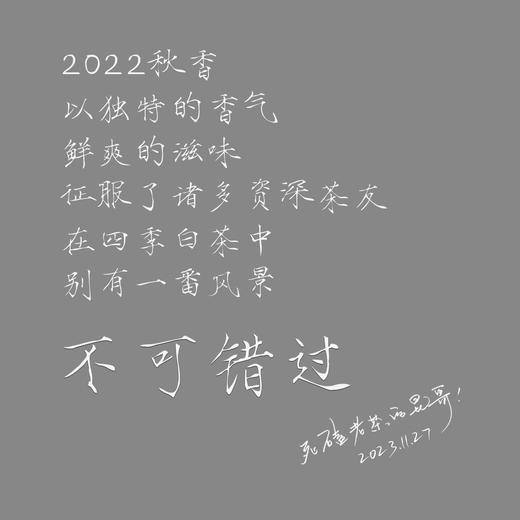 2022秋香
以独特的香气
鲜爽的滋味
征服了诸多资深茶友
在四季白茶中
别有一番风景
不可错过
死磕老茶的昆哥!
2023.11.27